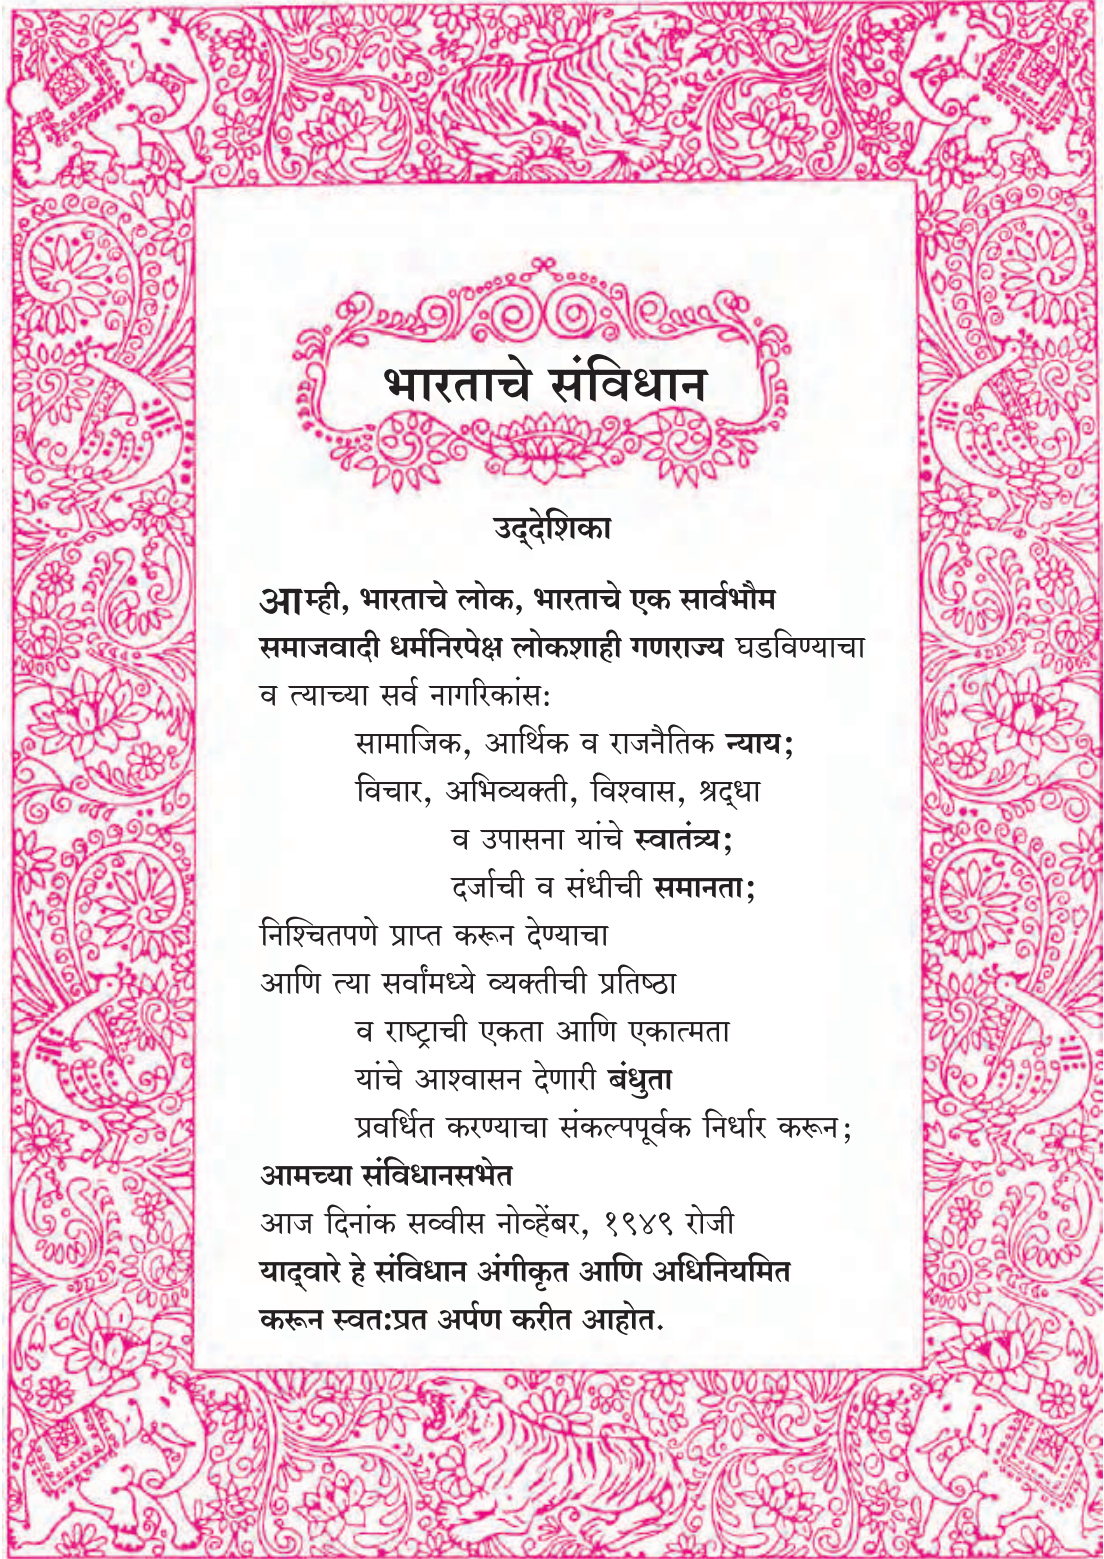 भारताचे संविधान
उद्‌देशिका
आम्ही, भारताचे लोक, भारताचे एक सार्वभौम
समाजवादी धर्मनिरपेक्ष लोकशाही गणराज्य घडविण्याचा
व त्याच्या सर्व नागरिकांस:
सामाजिक, आर्थिक व राजनैतिक न्याय;
विचार, अभिव्यक्ती, विश्वास, श्रद्‌धा
व उपासना यांचे स्वातंत्र्य;
दर्जाची व संधीची समानता;
निश्चितपणे प्राप्त करून देण्याचा
आणि त्या सर्वांमध्ये व्यक्तीची प्रतिष्ठा
व राष्ट्राची एकता आणि एकात्मता
यांचे आश्वासन देणारी बंधुता
प्रवर्धित करण्याचा संकल्पपूर्वक निर्धार करून;
आमच्या संविधानसभेत
आज दिनांक सव्वीस नोव्हेंबर, १९४९ रोजी
याद्‌वारे हे संविधान अंगीकृत आणि अधिनियमित
करून स्वत:प्रत अर्पण करीत आहोत.